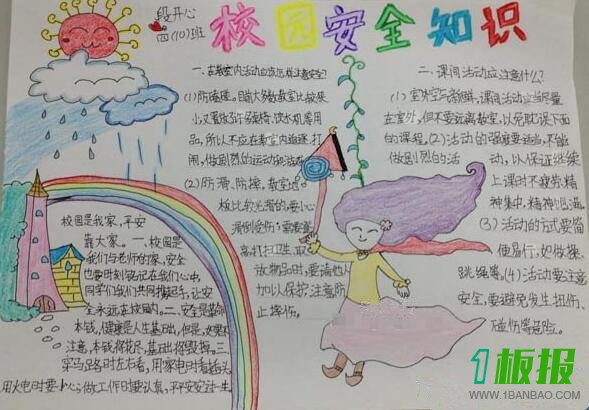 段开心
四(10)班
校园安全知识
一.在教室内活动应该怎样注意安全?
(1)防磕碰。目前大多数教室比较狭
小又置放了许多桌椅、饮水机等用
品,所以不应在教室内追逐打
闹,做剧烈的运动和游戏
(2)防滑、防摔。教室地
板比较光滑的要小心
滑倒受伤;需要登
高打扫卫生、取
放物品时,要请他人
加以保护,注意防
止摔伤。
二.课间活动应注意什么?
(1)室外空气新鲜,课间活动应当尽量
在室外,但不要远离教室,以免耽误下面
的课程。(2)活动的强度要适当,不能
做剧烈的活动,以保证继续
上课时不疲劳,精
神集中,精神饱满
(3)活动的方式要简
便易行,如做操、
跳绳等。(4)活动要注意
安全,要避免发生扭伤、
碰伤等危险。
校园是我家,平安
靠大家。一.校园是
我们与老师的家,安全
也要时刻铭记在我们心中,
同学们我们共同携起手,让安
全永远在校园内。二.安全是
本钱,健康是人生基础,但是,如果
注意,本钱将花尽,基础将毁掉。三.
穿马路时左右看,用家电时看插头,
用火电时要小心,做工作时要认真,平平安安过一生
1板报
WWW.1BANBAO.COM